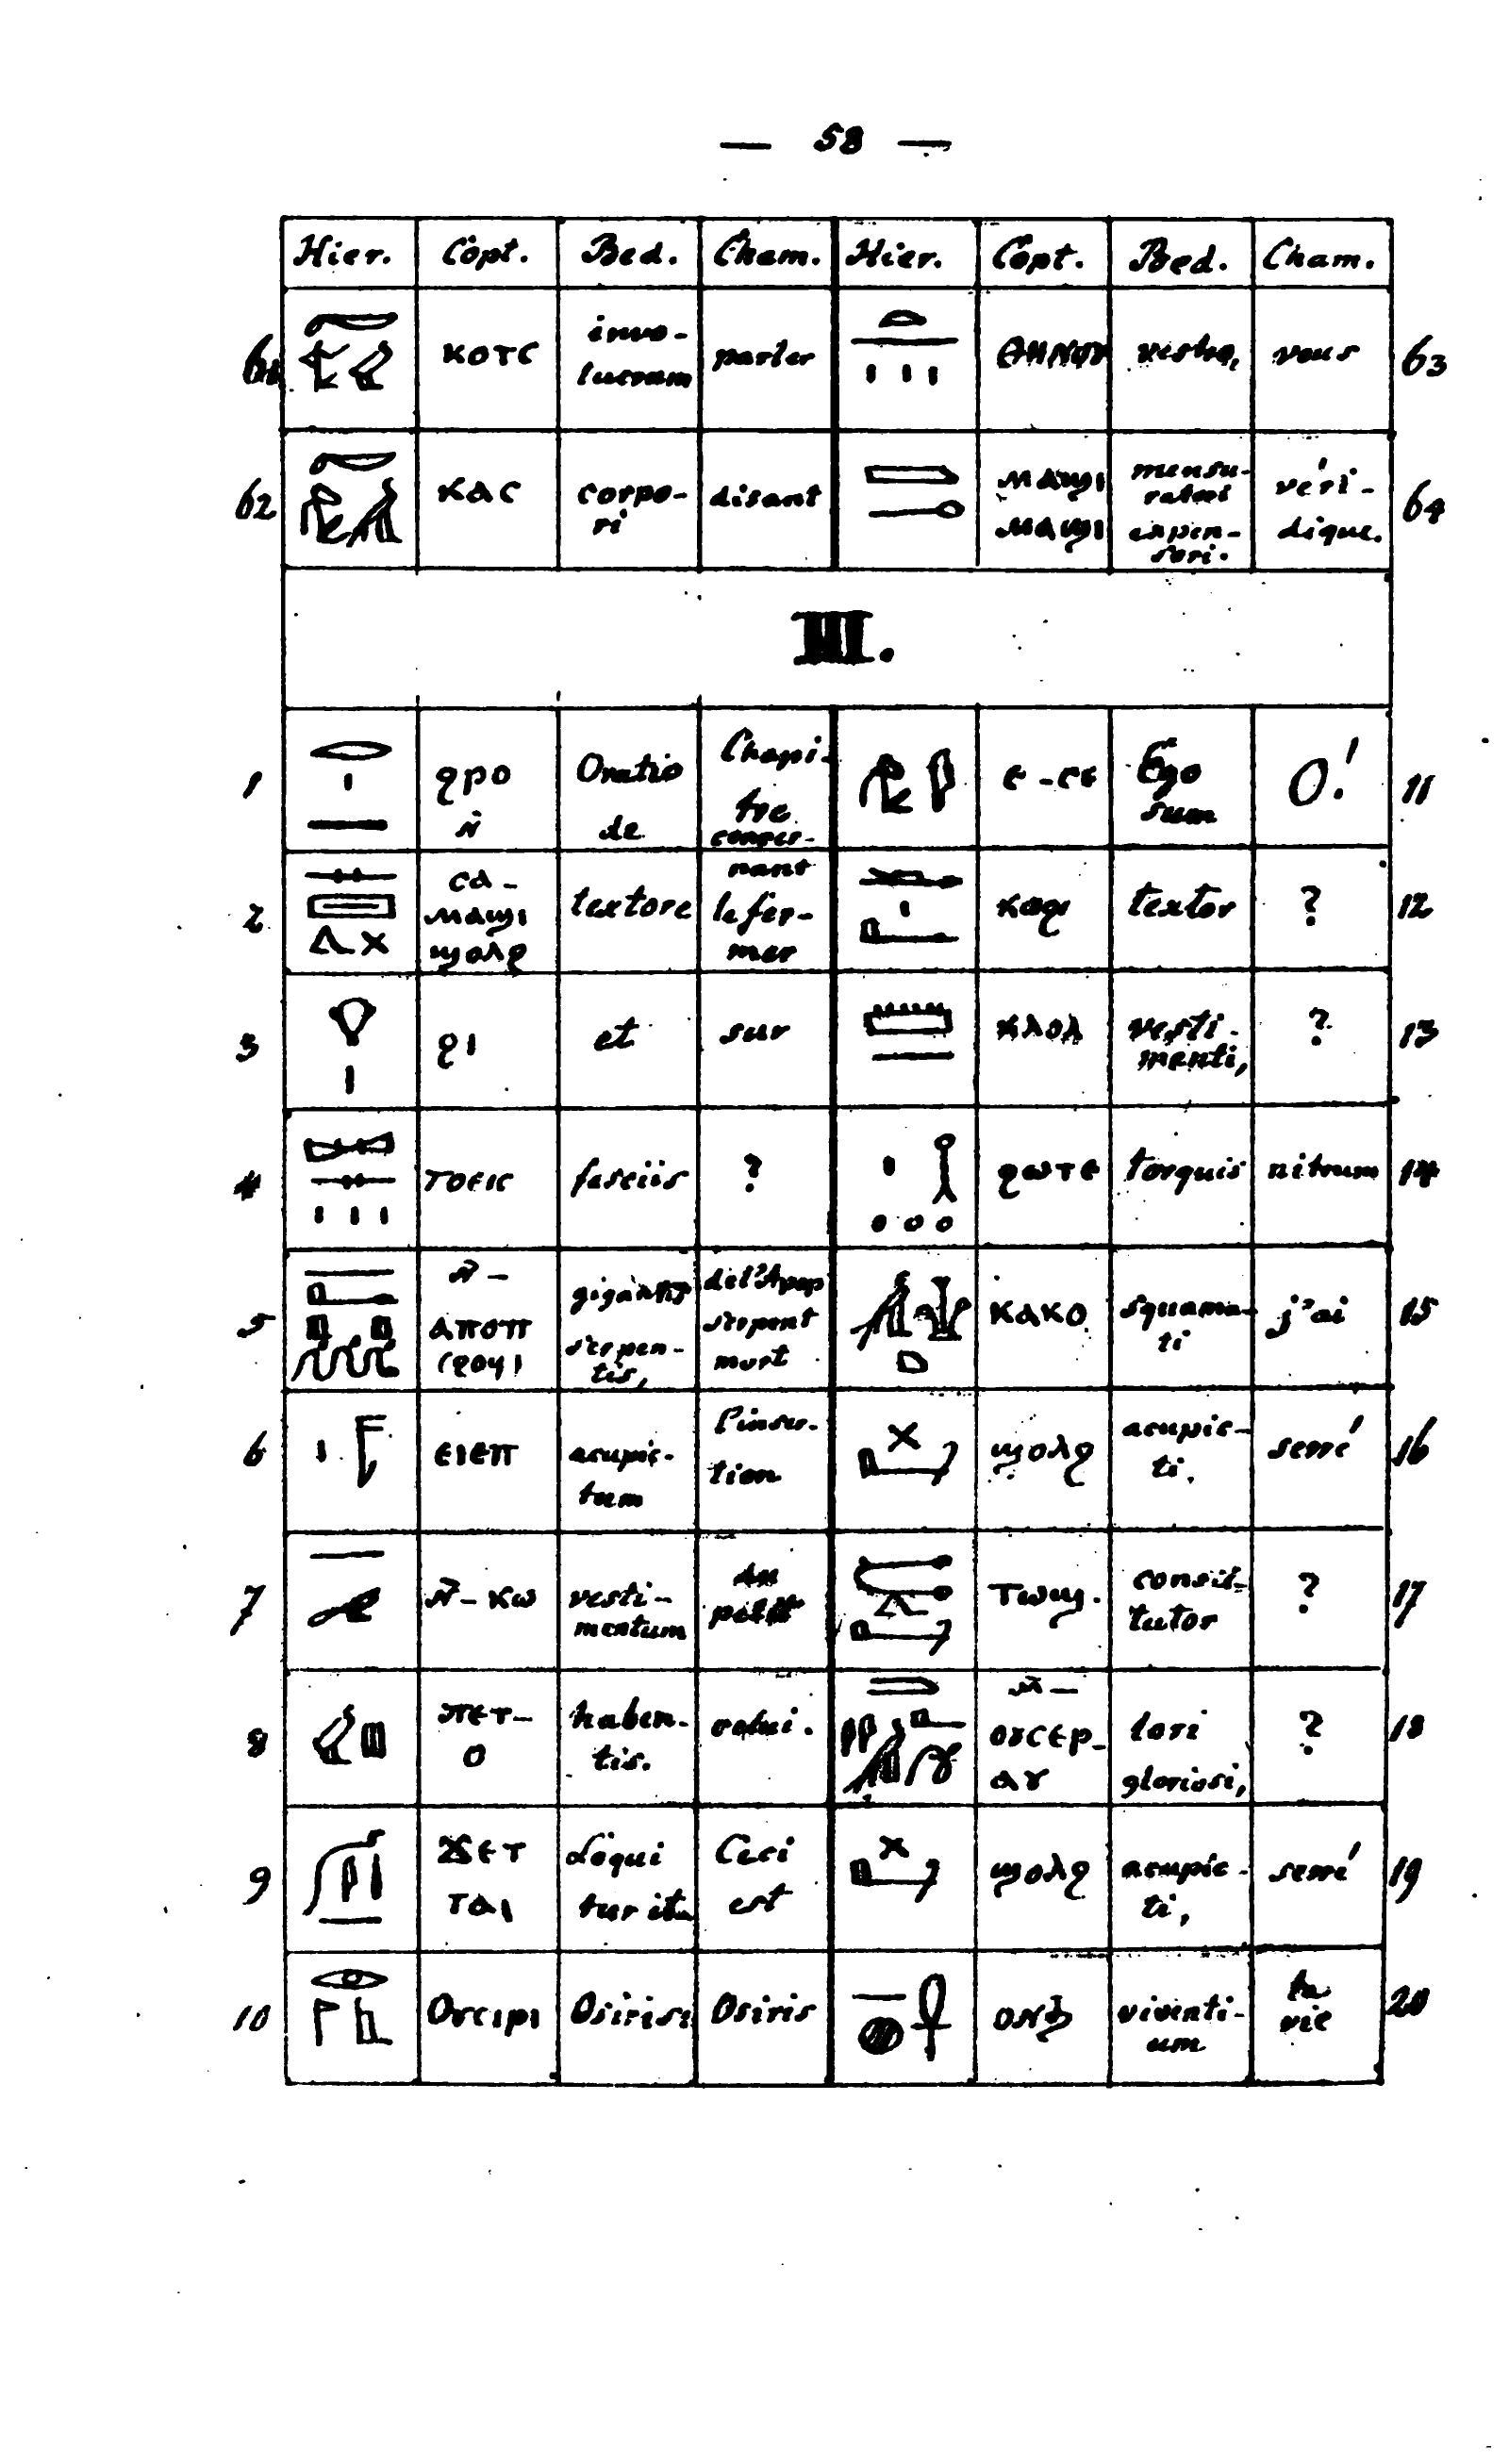 — 58 —
Hier. Copt. Bed. Cham. Hier. Copt. Bed. Cham.
61 ⲕⲟⲧⲥ invo-
lucrum parler
vestro, vous 63
62 ⲕⲁⲥ corpo-
ri disant
ⲙⲁϣⲓ
ⲙⲁϣⲓ mensu-
ratori
expen-
sori. véri-
dique. 64
III.
1 ϩⲣⲟ
ⲛ̀ Oratio
de Chapi-
tre
concer-
ⲉ-ⲥⲉ Ego
sum O! 11
2 ⲥⲁ-
ⲙⲁϣⲓ
ϣⲟⲗϩ textore nant
le fer-
mer
textor ? 12
3 ϩⲓ et sur
ⲕⲗⲟⲗ vesti-
menti, ? 13
4 ⲧⲟⲉⲓⲥ fasciis ?
ϩⲱⲧⲉ torquis nitrum 14
5 ⲛ̄-
ⲁⲡⲟⲡ
(ϩⲟϥ) gigantis
serpen-
tis, del'Apop
serpent
mort
ⲕⲁⲕⲟ squama-
ti j'ai 15
6 ⲉⲓⲉⲡ acupic-
tum l'inser-
tion
ϣⲟⲗϩ acupic-
ti. serré 16
7 ⲛ̄-ⲕⲱ vesti-
mentum
ⲧⲱϣ. consti-
tutor ? 17
8 ⲡⲉⲧ-
ⲟ haben-
tis. celui.
ⲙ̄-
ⲟⲩⲥⲉⲣ-
ⲁⲩ lori
gloriosi, ? 18
9 ϫⲉⲧ
ⲧⲁⲓ Loqui
tur ita Ceci
est
ϣⲟⲗϩ acupic-
ti, serré 19
10 ⲟⲩⲥⲓⲣⲓ Osirisi Osiris
ⲟⲛϧ viventi-
um la
vie 20